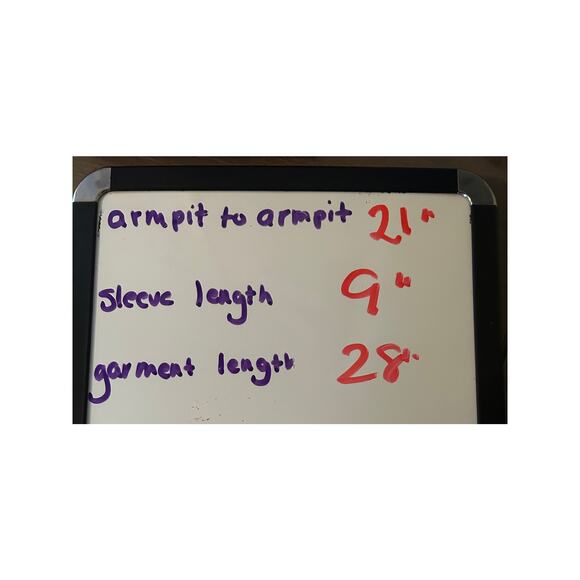 armpit to armpit 21"
sleeve length 9"
garment length 28"